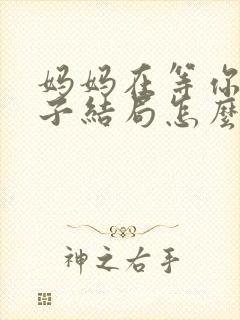 妈妈在等你
子結局怎麼
神之右手